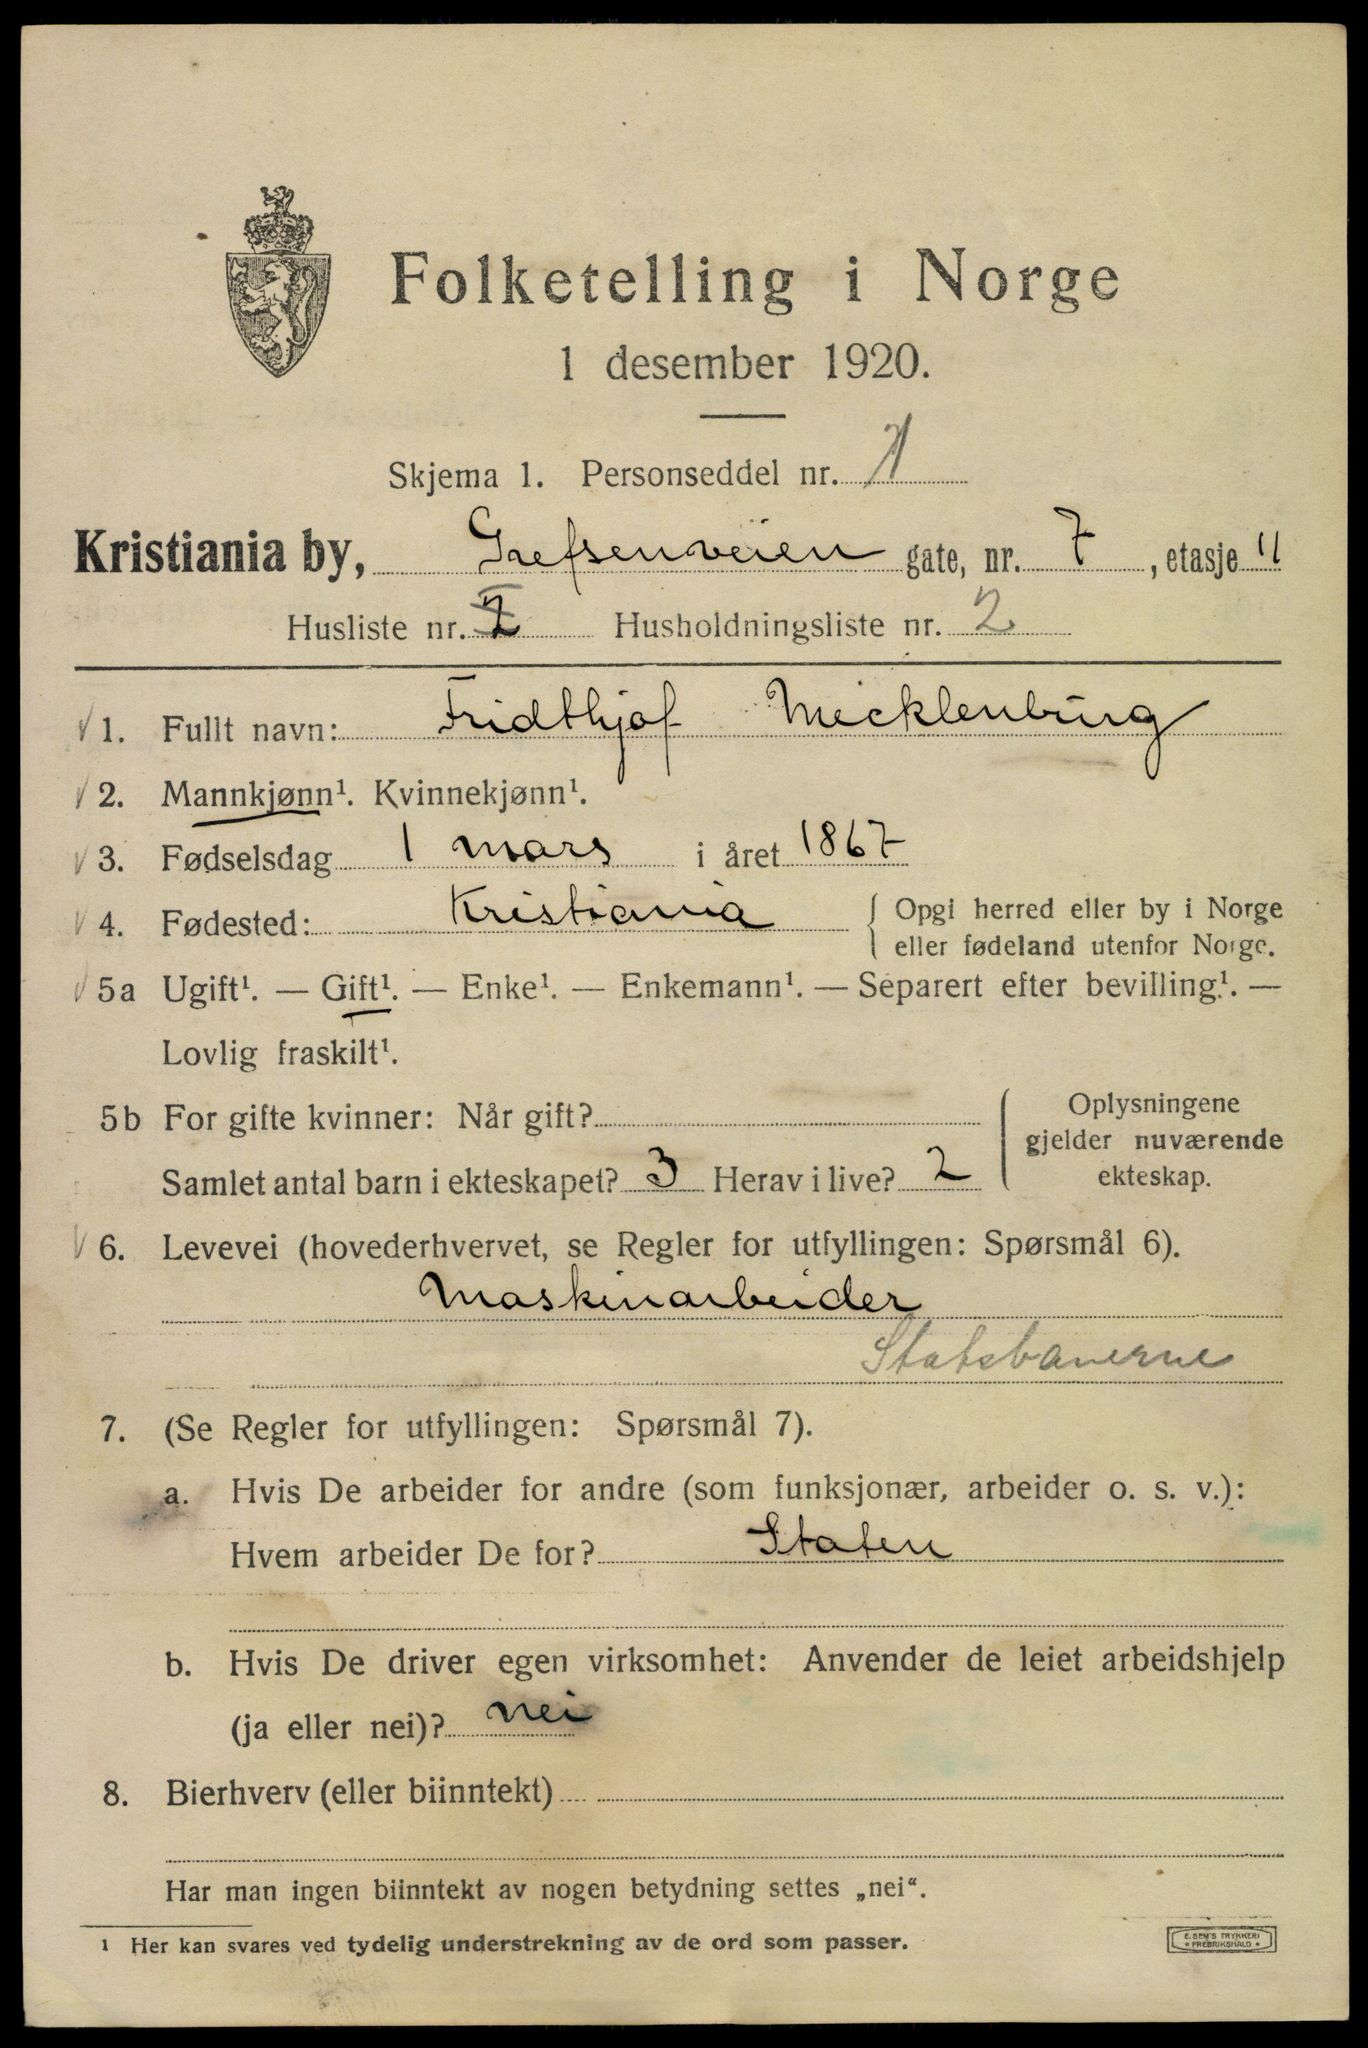 Folketelling i Norge
1 desember 1920.
Skjema 1. Personseddel nr. 1
Kristiania by, Grefsenveien gate, nr. 7, etasje II
Husliste nr. 2 Husholdningsliste nr. 2
1. Fullt navn: Fridthjof Mecklenburg
2. Mannkjønn¹. Kvinnekjønn¹.
3. Fødselsdag 1 mars i året 1867
4. Fødested: Kristiania { Opgi herred eller by i Norge
eller fødeland utenfor Norge.
5a Ugift¹. — Gift¹. — Enke¹. — Enkemann¹. — Separert efter bevilling¹. —
Lovlig fraskilt¹.
5b For gifte kvinner: Når gift?
Samlet antal barn i ekteskapet? 3 Herav i live? 2
Oplysningene
gjelder nuværende
ekteskap.
6. Levevei (hovederhvervet, se Regler for utfyllingen: Spørsmål 6).
Maskinarbeider
Statsbanerne
7. (Se Regler for utfyllingen: Spørsmål 7).
a. Hvis De arbeider for andre (som funksjonær, arbeider o. s. v.):
Hvem arbeider De for? Staten
b. Hvis De driver egen virksomhet: Anvender de leiet arbeidshjelp
(ja eller nei)? nei
8. Bierhverv (eller biinntekt)
Har man ingen biinntekt av nogen betydning settes „nei“.
¹ Her kan svares ved tydelig understrekning av de ord som passer.
E. SEM'S TRYKKERI
• FREDRIKSHALD •